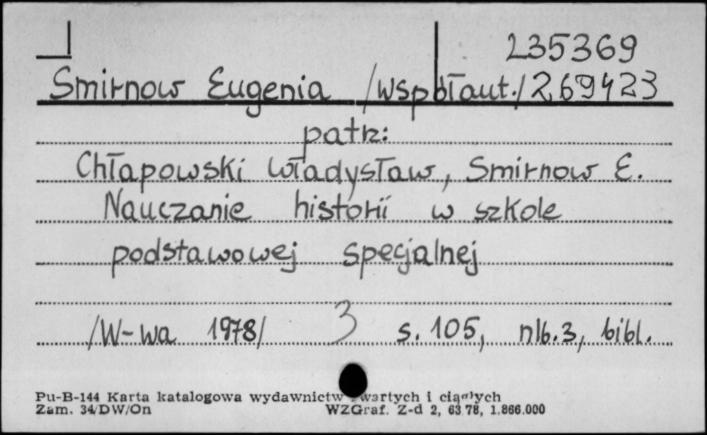 235369
Smirnow Eugenia /współaut./ 269423
patrz:
Chłapowski Władysław, Smirnow E.
Nauczanie historii w szkole
podstawowej specjalnej
/W-wa 1978/ 3 s. 105, nlb. 3, bibl.
Pu-B-144 Karta katalogowa wydawnictw zwartych i ciągłych
Zam. 34/DW/On WZGraf. Z-d 2, 63 78, 1.866.000